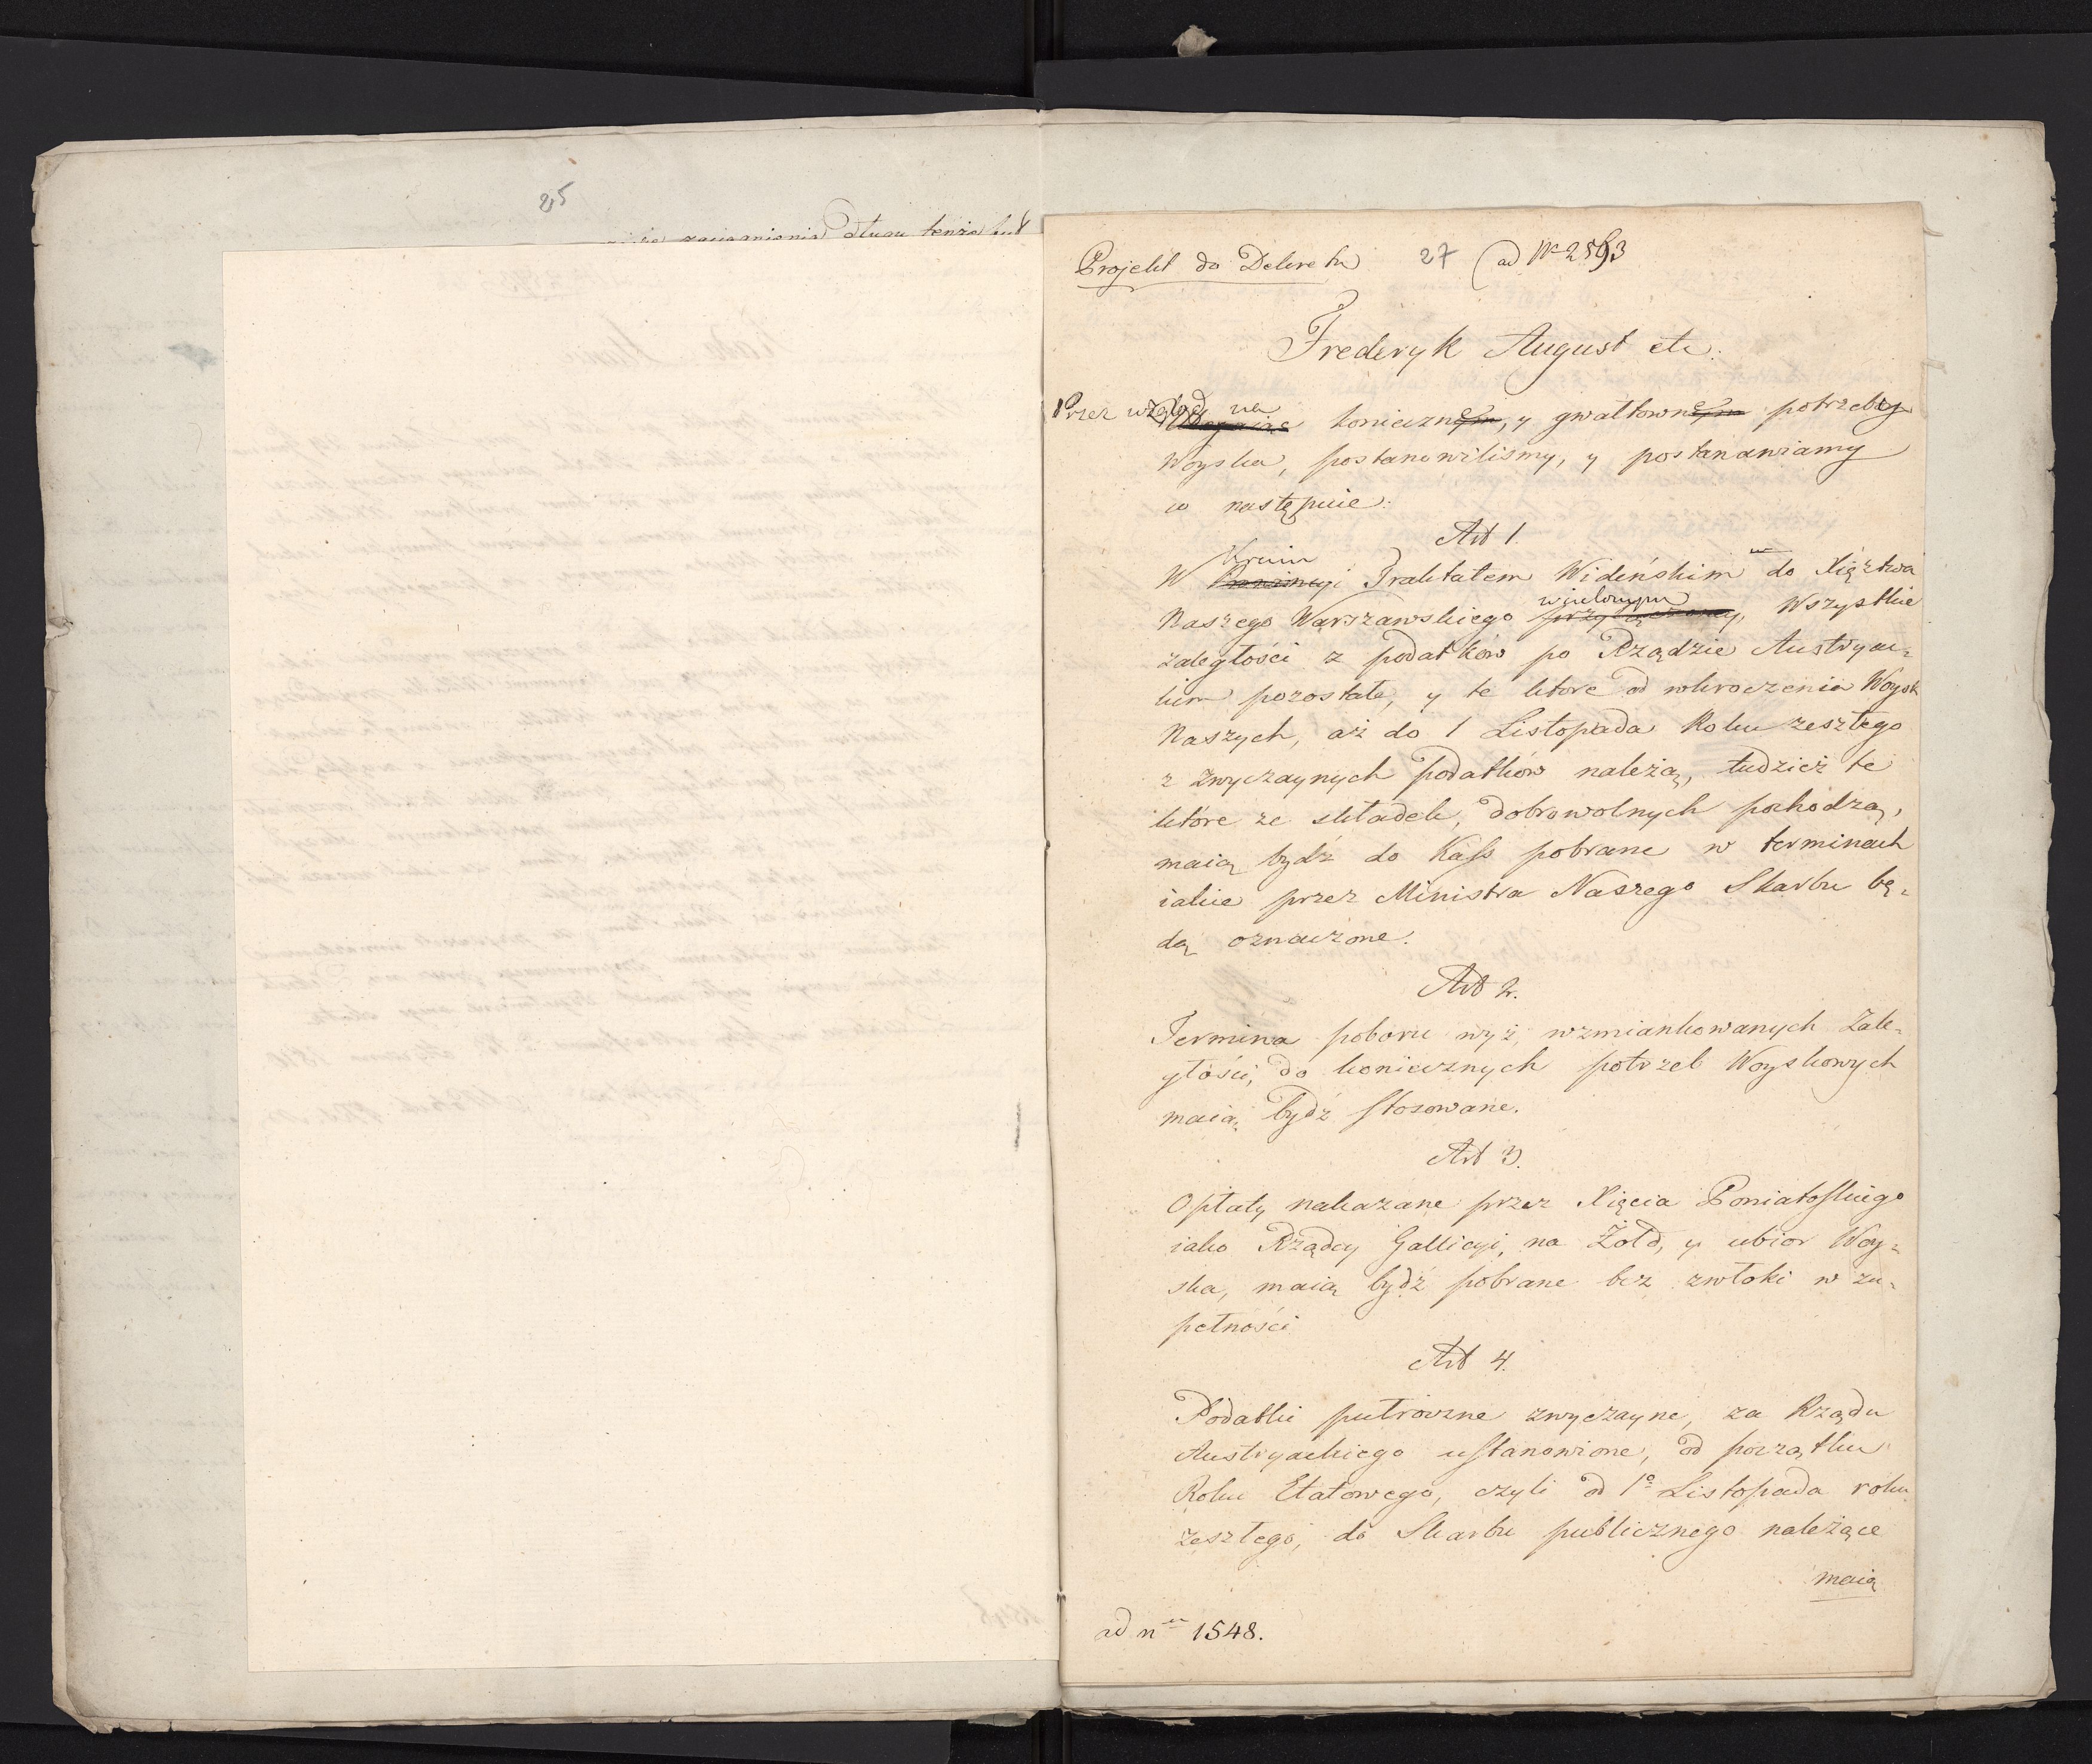 25
zaięgnienia długu tenże był
Projekt do Dekretu 27 ad Nr 2593
Fryderyk August etc.
Przez wzgląd na
konieczne, y gwałtowne potrzeby
Woyska, postanowiliśmy, y postanawiamy
co następuie:
Art 1.
Kraiu
W Prowincyi Traktatem Wideńskim do Xięztwa
wcielonym
Naszego Warszawskiego przyłączoney, Wszystkie
zaległości z podatków po Rządzie Austryac-
kim pozostałe, y te które od wkroczenia Woysk
Naszych, aż do 1 Listopada Roku zeszłego
z zwyczaynych podatków należą, tudzież te
które ze składek, dobrowolnych pochodzą,
maią bydź do Kass pobrane w terminach
iakie przez Ministra Naszego Skarbu bę-
dą oznaczone.
Art 2.
Termina poboru wyż wzmiankowanych Zale-
głości, do koniecznych potrzeb Woyskowych
maią bydź stosowane.
Art 3.
Opłaty nakazane przez Xięcia Poniatoskiego
iako Rządcy Gallicyi, na Żołd, y ubior Woy-
ska, maią bydź pobrane bez zwłoki w zu-
pełności
Art 4.
Podatki publiczne zwyczayne, za Rządu
Austryackiego ustanowione, od początku
Roku Etatowego, czyli od 1º Listopada roku
zeszłego, do Skarbu publicznego należące
maią
ad nrm 1548.